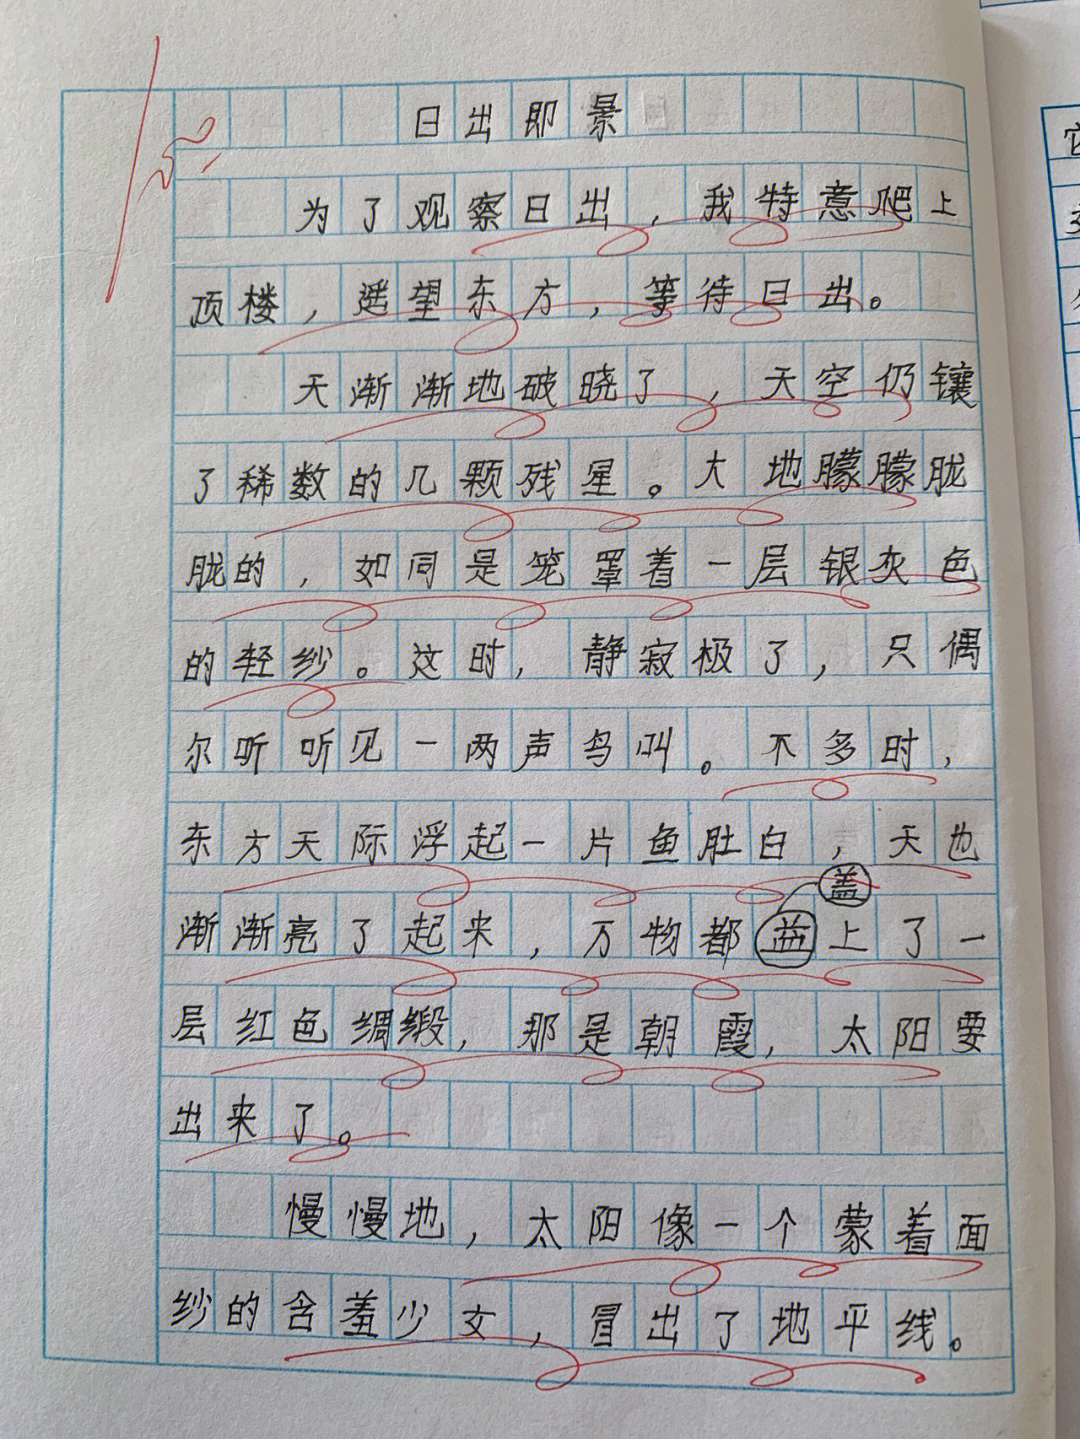 日出即景
为了观察日出，我特意爬上
顶楼，遥望东方，等待日出。
天渐渐地破晓了，天空仍镶
了稀数的几颗残星。大地朦朦胧
胧的，如同是笼罩着一层银灰色
的轻纱。这时，静寂极了，只偶
尔听听见一两声鸟叫。不多时，
东方天际浮起一片鱼肚白，天也
盖
渐渐亮了起来，万物都益上了一
层红色绸缎，那是朝霞，太阳要
出来了。
慢慢地，太阳像一个蒙着面
纱的含羞少女，冒出了地平线。